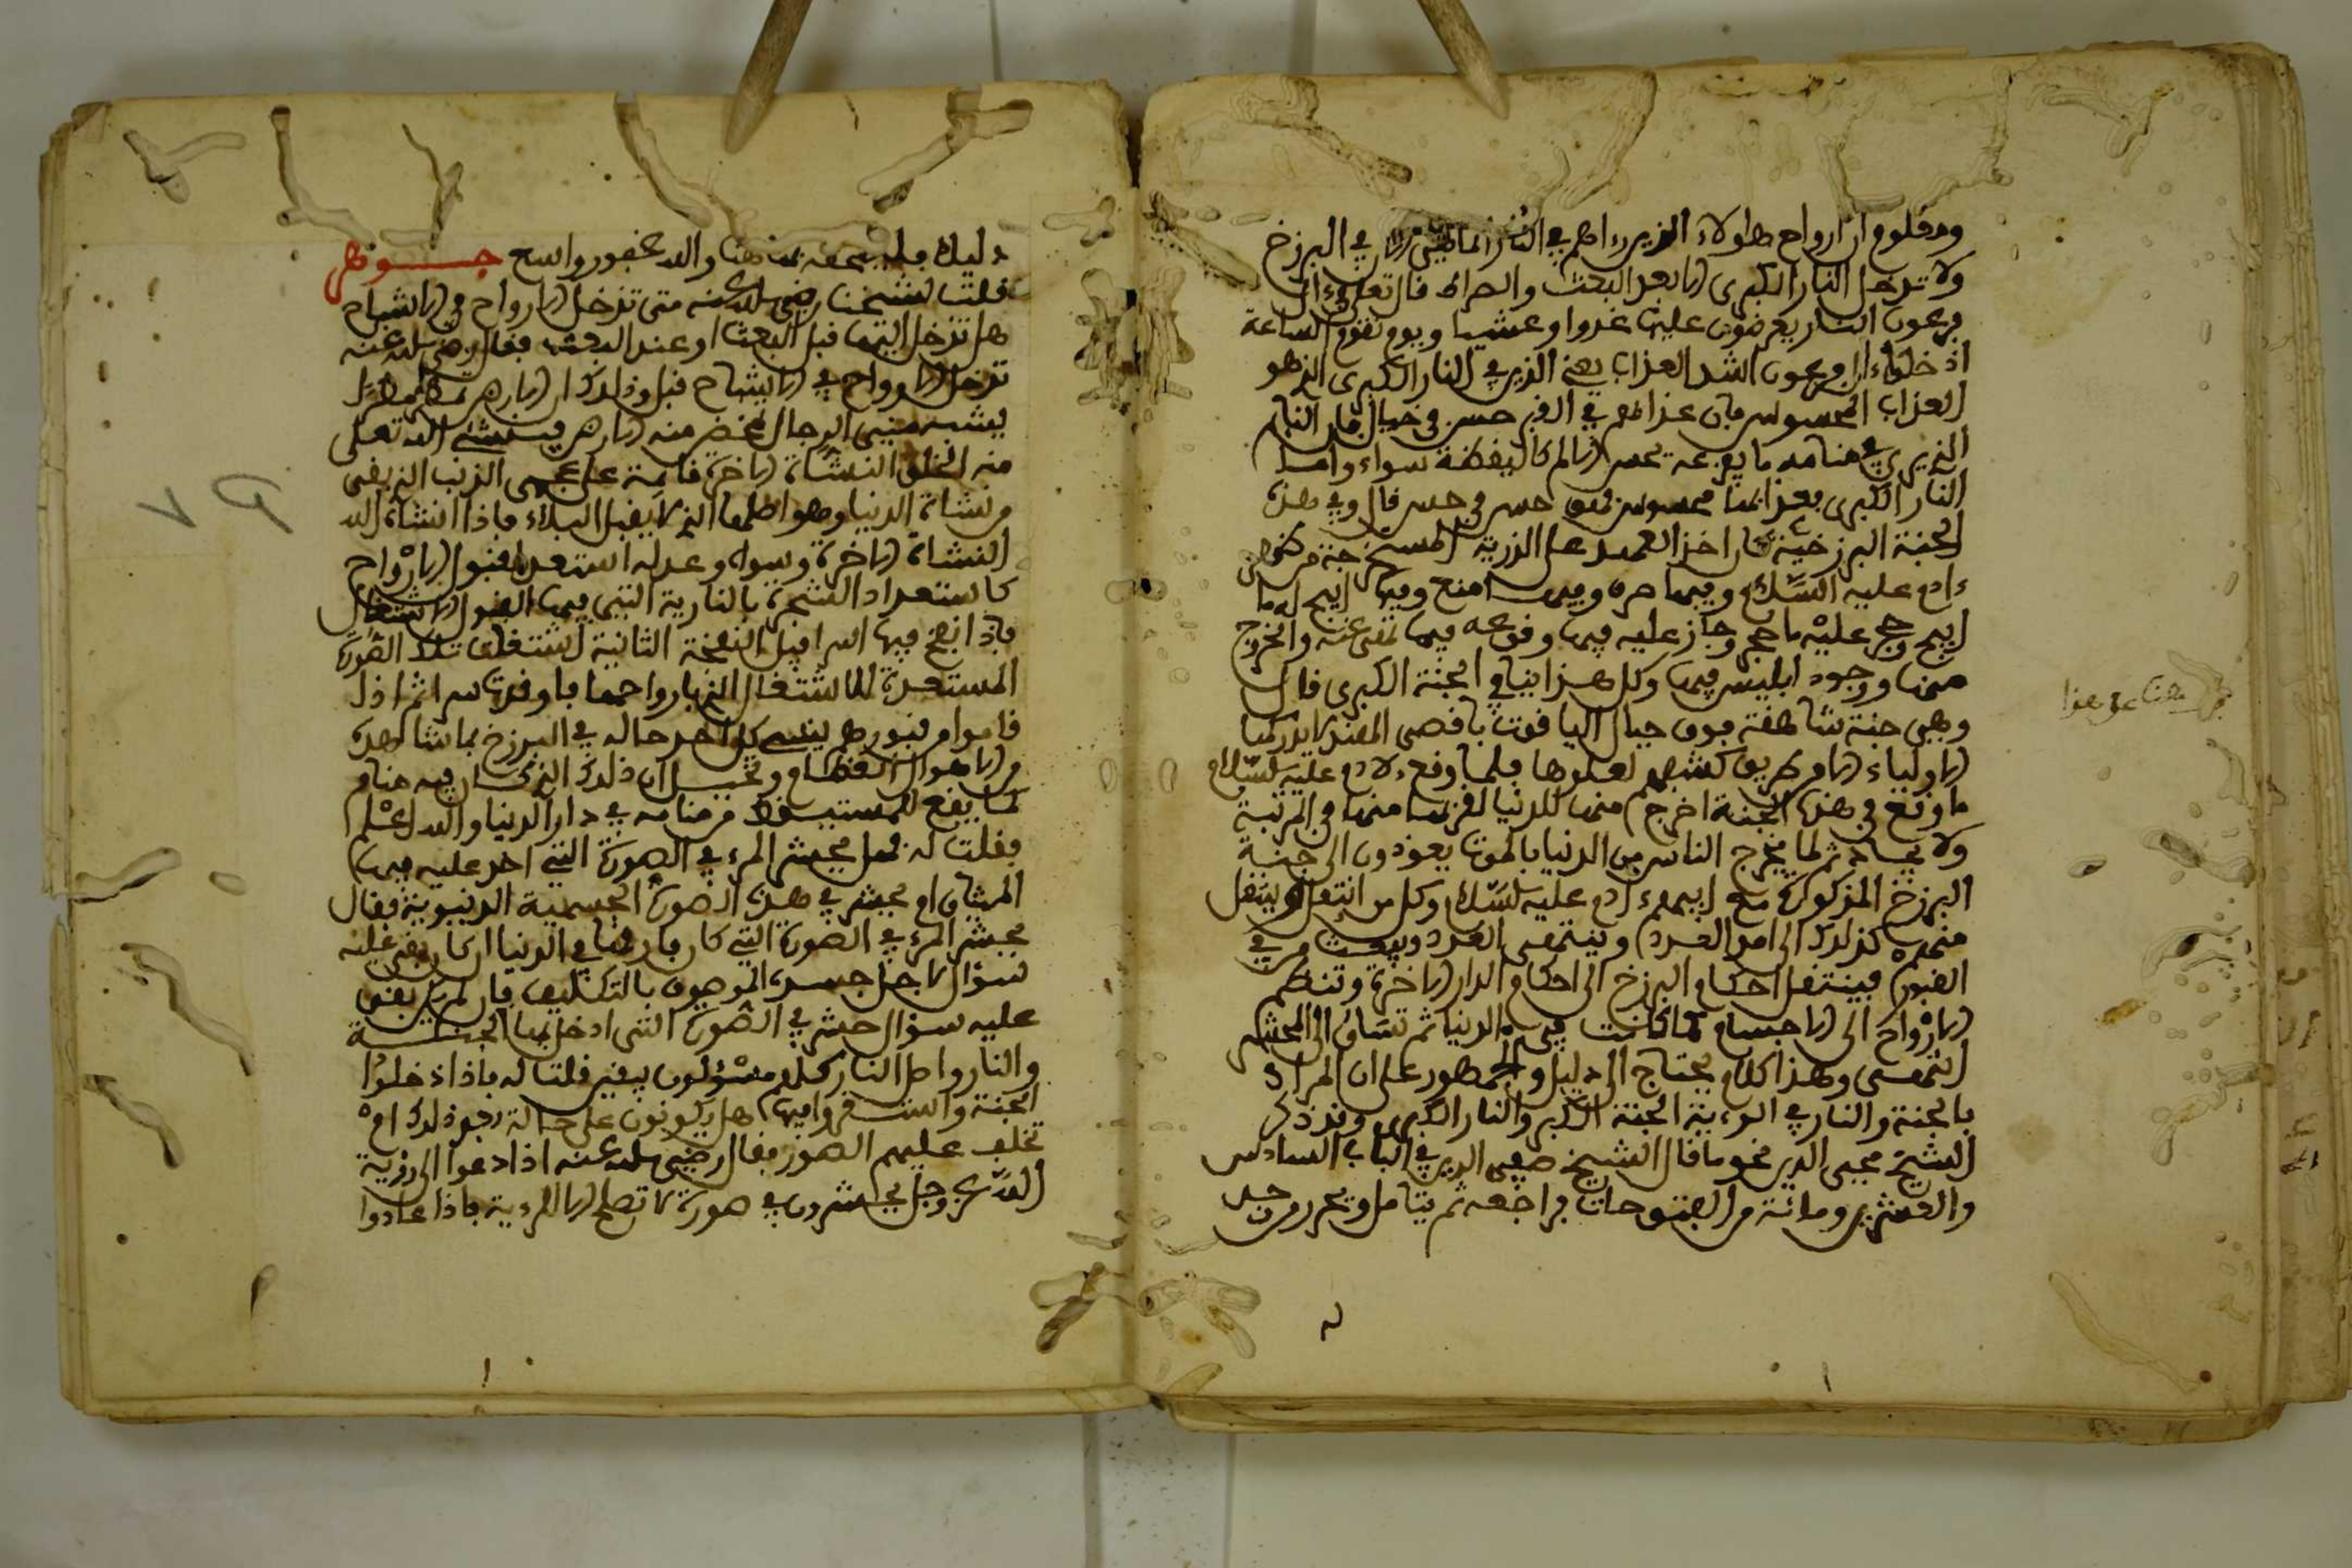 ومعلوم ان ارواح هاولاء الذين رءاهم في النار انما هي الان في البرزخ
ولا تدخل النار الكبرى الا بعد البعث والصراط قال تعلى وءال
فرعون النار يعرضون عليها غدوا وعشيا ويوم تقوم الساعة
ادخلوا ءال فرعون اشد العذاب يعني الذين في النار الكبرى الذي هو
العذاب المحسوس فان عذابهم في القبر حس في خيال فان النايم
الذي يرى في منامه ما يفزعه يحس الالم كاليقظة سواء واما
النار الكبرى فعذابها محسوس فهو حس في حس قال وفي هذه
الجنة البرزخية كان اخذ العهد على الذرية المستخرجة من ظهر
ءادم عليه السلام وفيها مره وفيها منع وفيها ابيح له ما
ابيح وحجر عليه ما حجر وجاز عليه فيها وقوعه فيما نهي عنه والخروج
منها ووجود ابليس فيها وكل هذا ينافي الجنة الكبرى قال
وهي جنة شاهقة فوق جبال الياقوت باقصى المغرب لا يدركها
الاولياء الا من طريق كشفهم لعلوها فلما وقع لادم عليه السلام
ما وقع في هذه الجنة اخرج منها للدنيا لقربها منها في المرتبة
ولا يخرج الناس من الدنيا بالموت يعودون الى جنة
البرزخ المذكورة مع ابيهم ءادم عليه السلام وكل من انتقل وينتقل
منهم كذلك الى امد العدد وينتهي العدد ويبعث من في
القبور فينتقل احكام البرزخ الى احكام الدار الاخرة وتنظم
الارواح الى الاجسام كما كانت في الدنيا ثم تساق الى المحشر
انتهى وهذا كلام يحتاج الى دليل والجمهور على ان المراد
بالجنة والنار في الرءية الجنة الكبرى والنار الكبرى وقد ذكر
الشيخ محيي الدين نحو ما قال الشيخ صفي الدين في الباب السادس
والعشرين ومائة من الفتوحات فراجعه ثم يتامل وتحرر فمن وجد
هنا
دليلا فليلحقه بها هنا والله غفور واسع جوهر
قلت لشيخنا رضي الله عنه متى تدخل الارواح في الاشباح
هل تدخل اليها قبل البعث او عند البعث فقال رضي الله عنه
تدخل الارواح في الاشباح قبل وذلك ان الارض تمطر مطرا
يشبه مني الرجال تمخض منه الارض فينشئ الله تعلى
منه الخلق النشاة الاخرة قائمة على عجب الذنب الذي بقي
من نشاة الدنيا وهو اصلها الذي لا يقبل البلاء فاذا انشا الله
النشاة الاخرة وسواه وعدله استعد لقبول الارواح
كاستعداد الشجرة بالنارية التي فيها لقبول الاشتعال
فاذا نفخ فيها اسرافيل النفخة الثانية اشتعلت تلك الصورة
المستعدة للاشتعال الذي بارواحها فاوقدت سراثم اذا
قاموا من قبورهم ينسى كل احد حاله في البرزخ بما شاهده
من الاهوال العظام وتخيل ان ذلك الذي كان فيه منام
كما يقع للمستيقظ من منامه في دار الدنيا والله اعلم
فقلت له فهل يحشر المرء في الصورة التي اخذ عليه فيها
الميثاق او يحشر في هذه الصورة الجسمية الدنيوية فقال
يحشر المرء في الصورة التي كان فارقها في الدنيا ان كان بقي عليه
سؤال لاجل جسده الموصوف بالتكليف فان لم يكن بقي
عليه سؤال حشر في الصورة التي ادخل بها الجنة
والنار واهل النار كلهم مسئولون بيقين قلت له فاذا دخلوا
الجنة واستقروا فيها هل يكونون على حالة بعد ذلك ام
تخلف عليهم الصور فقال رضي الله عنه اذا دعوا الى رؤية
الله عز وجل يحشرون في صورة لا تصلح الا للرءية فاذا عادوا